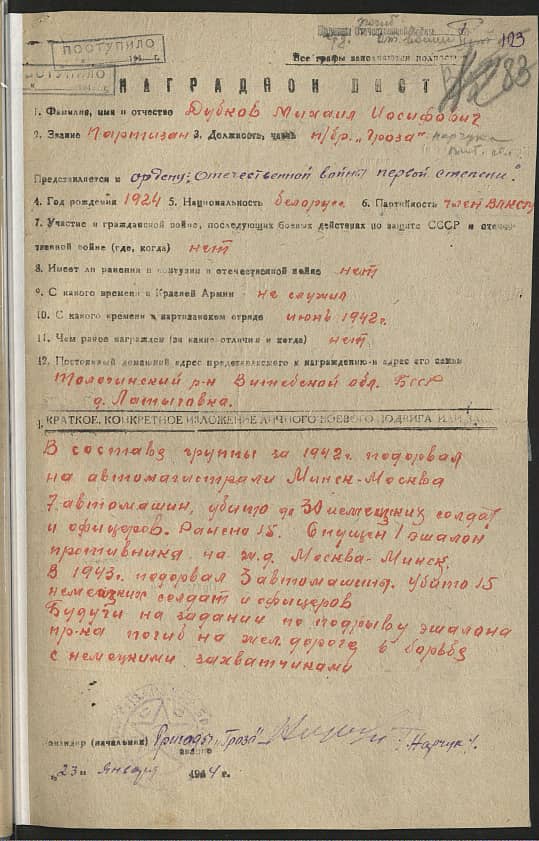 погиб
Приказ Отечественной войны
123
ПОСТУПИЛО
Все графы заполняются полностью
83
НАГРАДНОЙ ЛИСТ
1. Фамилия, имя и отчество Дубков Михаил Иосифович
2. Звание Партизан 3. Должность, часть п/бр. „Гроза"
Представляется к ордену: „Отечественной войны первой степени".
4. Год рождения 1924 5. Национальность белорус 6. Партийность член ВЛКСМ
7. Участие в гражданской войне, последующих боевых действиях по защите СССР и отечес-
твенной войне (где, когда) нет
8. Имеет ли ранения и контузии в отечественной войне нет
9. С какого времени в Красной Армии не служил
10. С какого времени в партизанском отряде июнь 1942 г.
11. Чем ранее награжден (за какие отличия и когда) нет
12. Постоянный домашний адрес представляемого к награждению и адрес его семьи
Толочинский р-н Витебской обл. БССР
д. Латыговка.
1. КРАТКОЕ, КОНКРЕТНОЕ ИЗЛОЖЕНИЕ ЛИЧНОГО БОЕВОГО ПОДВИГА ИЛИ
В составе группы за 1942 г. подорвал
на автомагистрали Минск-Москва
7 автомашин, убито до 30 немецких солдат
и офицеров. Ранено 15. Спущен 1 эшалон
противника на ж.д. Москва-Минск.
В 1943 г. подорвал 3 автомашины. Убито 15
немецких солдат и офицеров
Будучи на задании по подрыву эшалона
пр-ка погиб на жел. дороге в борьбе
с немецкими захватчинами
Командир (начальник) Бригады „Гроза" Нарчук
„23" Января 1944 г.